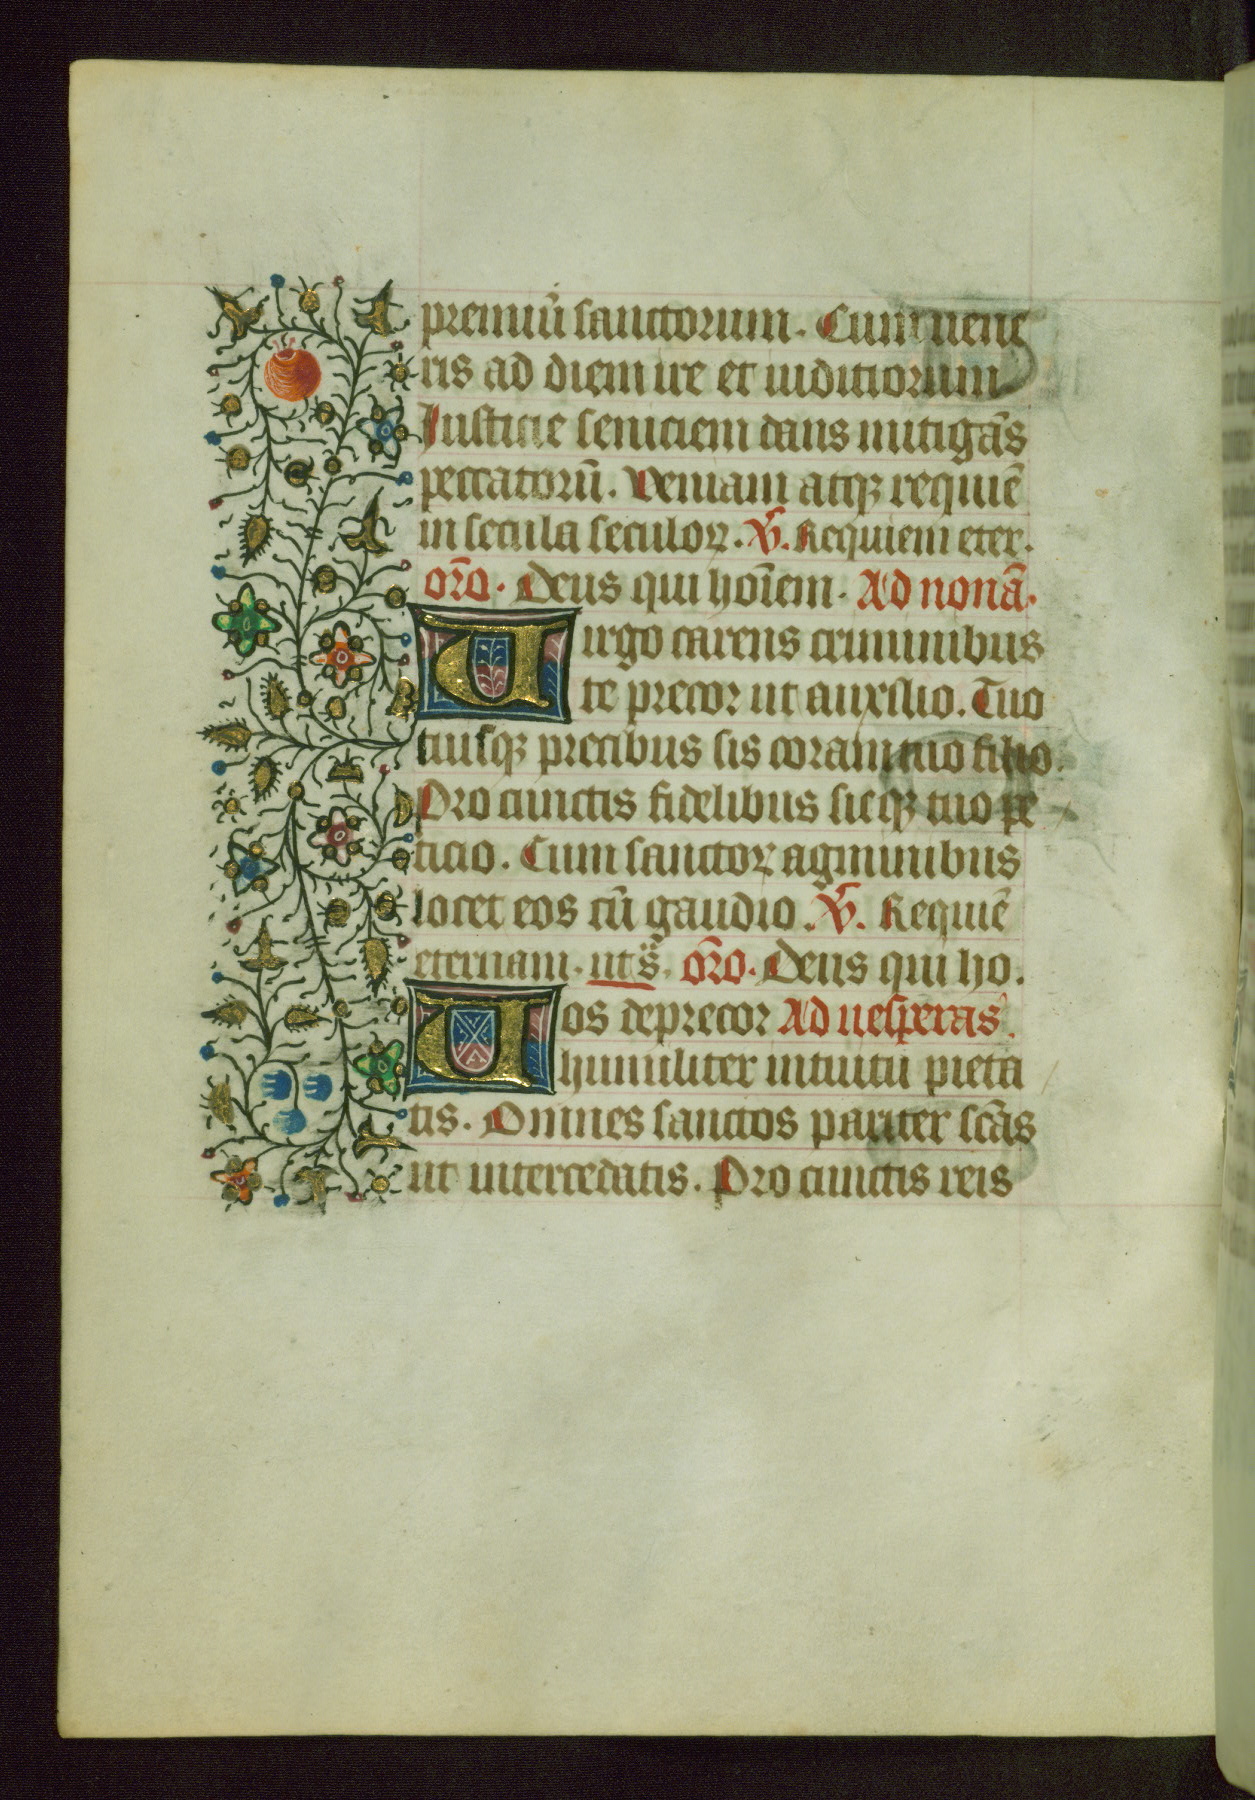 premiū sanctorum. Cum vene
ris ad diem ire et iuditiorum
Iusticie seniciem dans mitigās
peccatorū. Veniam atqꝫ requiē
in secula seculoꝝ. V̄. Requiem eter.
or̄o. Deus qui hoīem. Ad nonā.
Uirgo carens criminibus
te precor ut auxilio. Tuo
tuisqꝫ precibus sis coram tuo filio.
Pro cunctis fidelibus sicqꝫ tuo pe
ticio. Cum sanctoꝝ agminibus
locet eos cū gaudio. V̄. Requiē
eternam. ut s̄. or̄o. Deus qui ho.
Uos deprecor Ad vesperas.
humiliter intuitu pieta
tis. Omnes sanctos pariter sc̄as
ut intercedatis. Pro cunctis reis